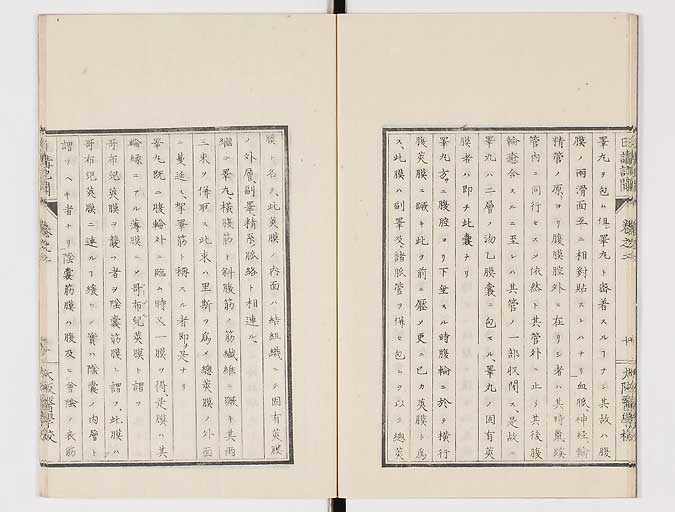 睾丸ヲ包ム但睾丸ト密着スルコナシ其故ハ腹
膜ノ兩滑面互ニ相對貼ストハナリ血脈神經輸
精管ノ原ヨリ腹膜腔外ニ在リシ者ハ其時
管内ニ同行セスシ依然ト其管外ニ止リ其後腹
輪癒合スルニ至レハ其管ノ一部収閉ス是故ニ
睾丸ハ二層ノ膜嚢ニ包マル睾丸ノ固有英
膜者ハ即チ此嚢ナリ
睾丸方ニ腹腔ヨリ下垂スル時腹輪ニ於テ横行
腹英膜ニ此ヲ前ニ壓シ更ニ己カ英膜ト爲
ス此膜ハ副睾及諸脈管ヲ併セ包ムヲ以テ總英
膜ト名ク此英膜ノ内面ハ結組織ニテ固有英膜
ノ外層副睾精系脈絡ト相連ル
睾丸横腹筋ト斜腹筋ノ筋纖維ニ其兩
三束ヲ此束ハ里斯ヲ爲メ總英膜ノ外面
ニ蔓延ス挙睾筋ト稱スル者即是ナリ
睾丸既ニ腹輪外ニ臨ム時又一膜ヲ得是膜ハ其
輪縁ニアル薄膜ニメ哥布児英膜ト謂フ
哥布児英膜ヲ襲フ者ヲ陰嚢筋膜ト謂フ此膜ハ
哥布児英膜ニ連ルコ緩シ實ハ陰嚢ノ内層ト
謂フヘキ者ナリ陰嚢筋膜ハ腹及ヒ會陰ノ表筋
大阪醫學校